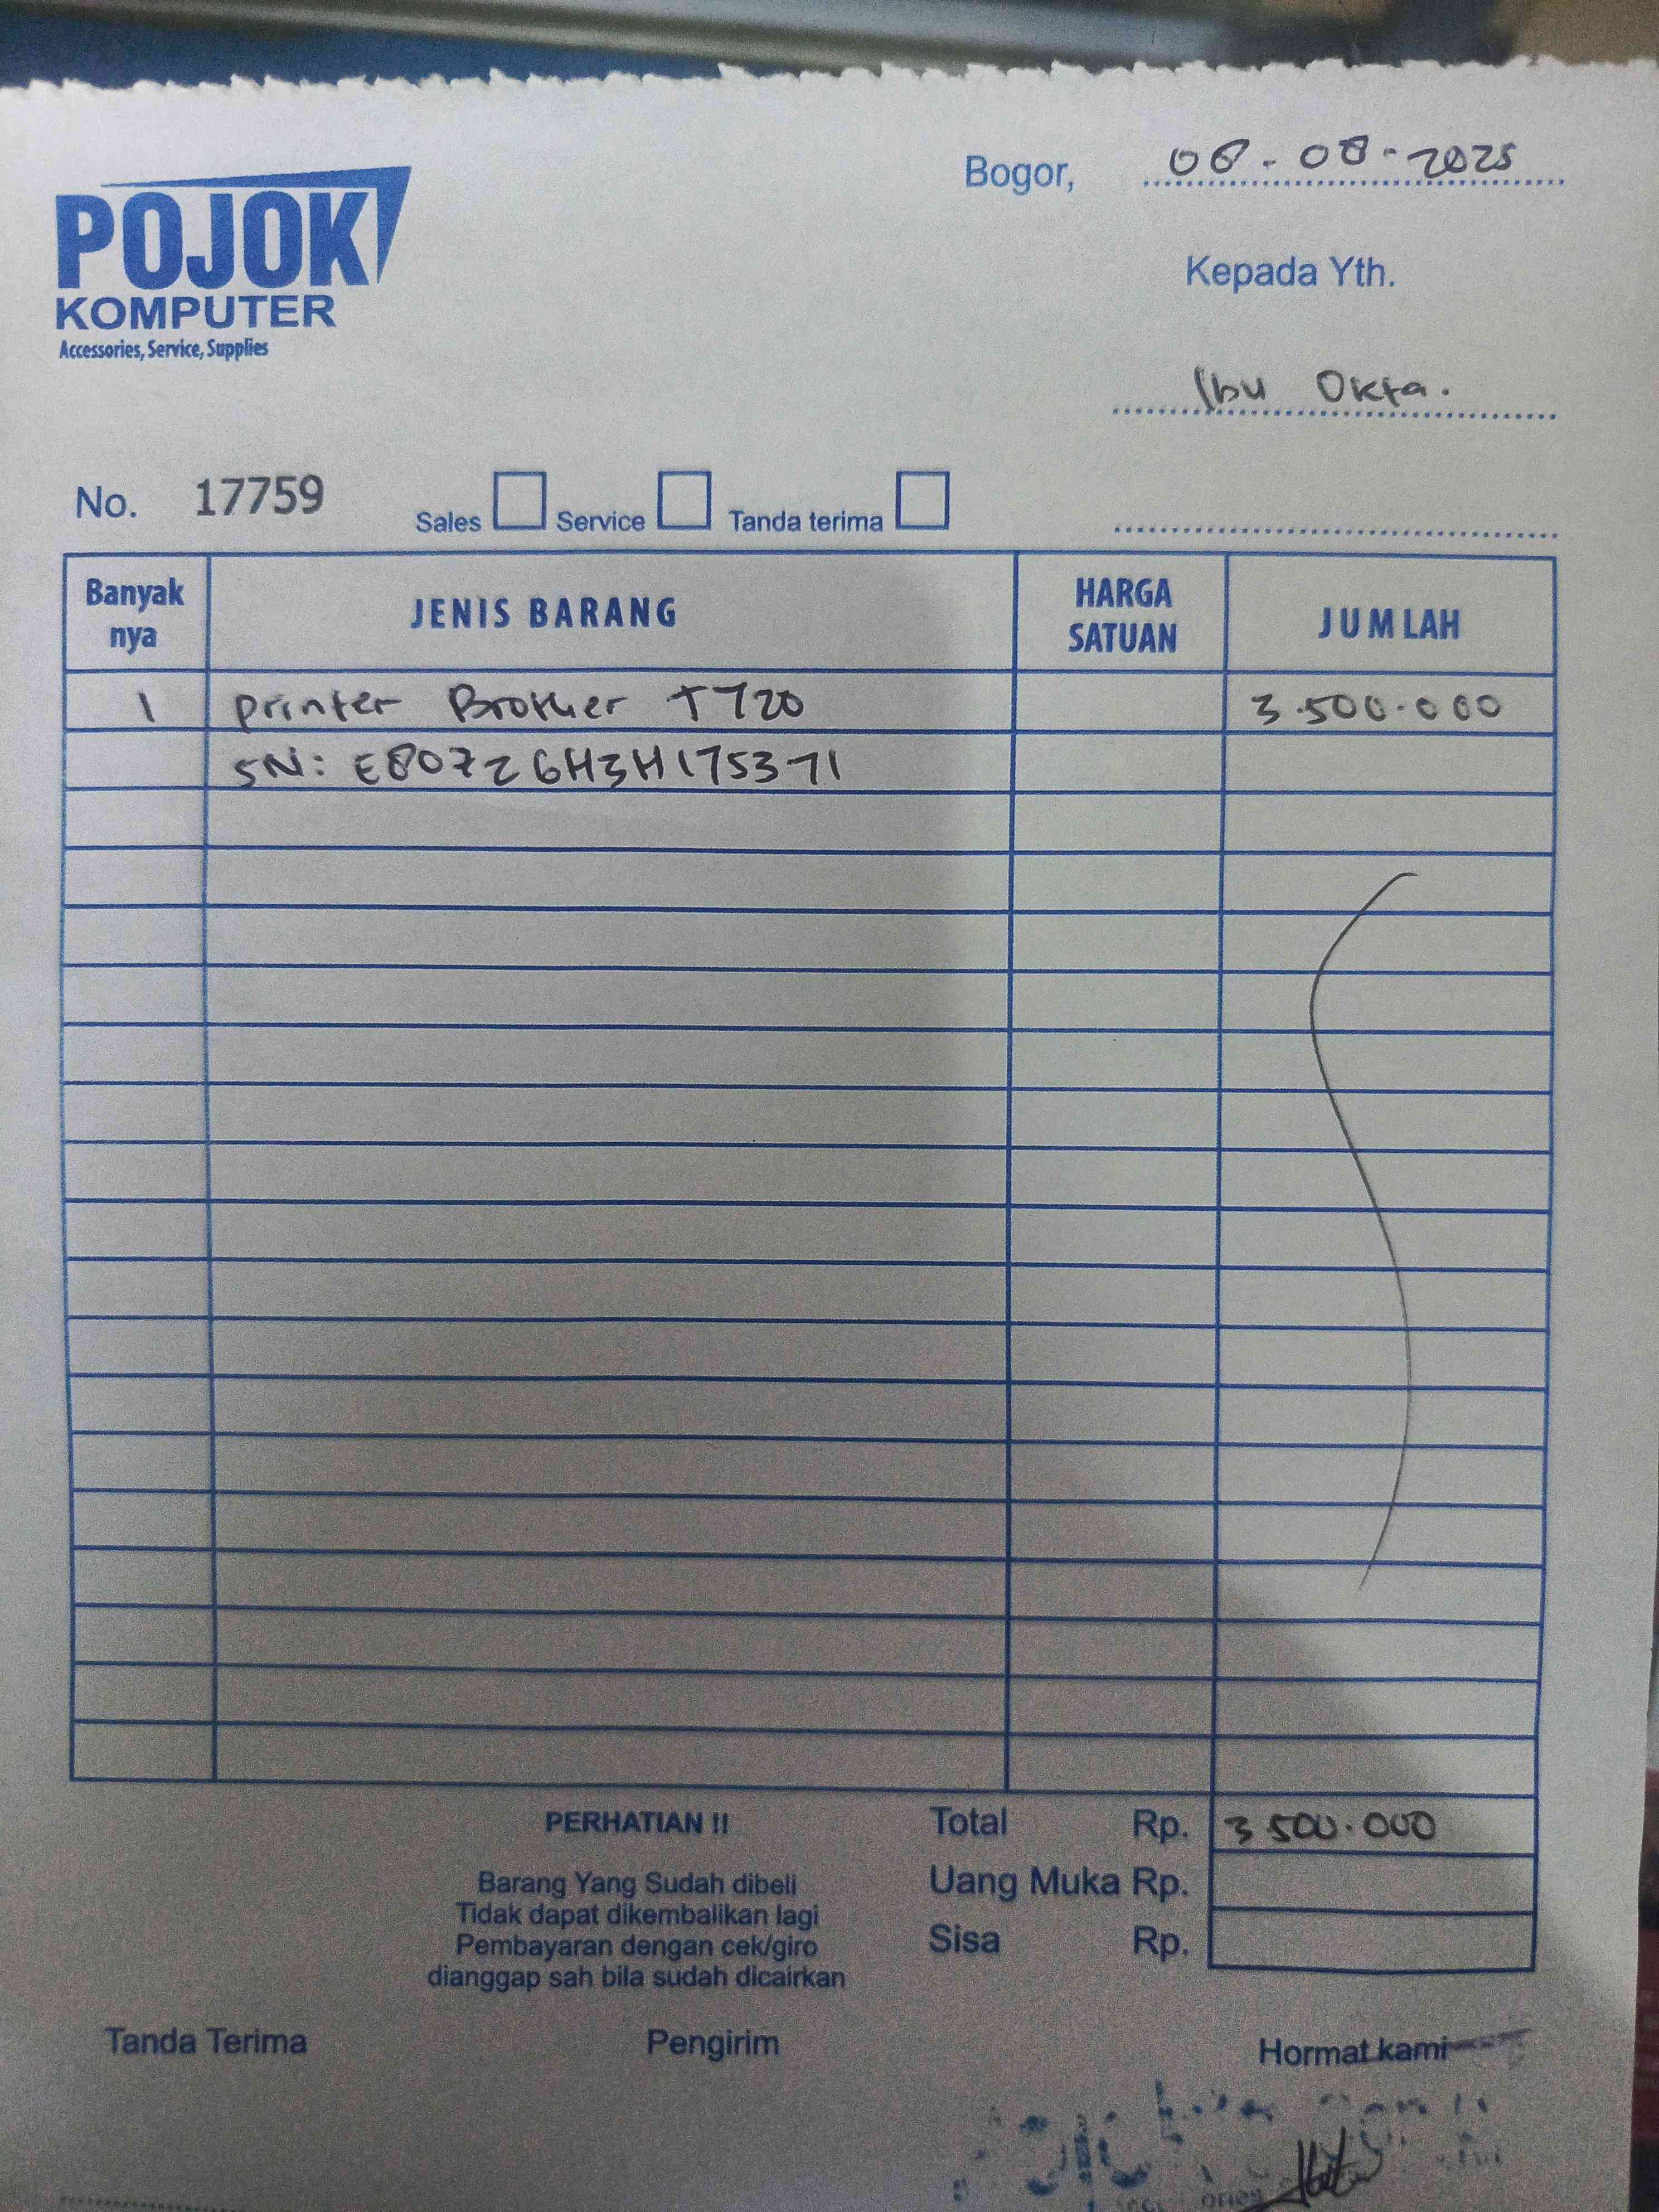 Bogor, 08-08-2025
POJOK
KOMPUTER
Accessories, Service, Supplies
Kepada Yth.
Ibu Okta.
No. 17759 Sales Service Tanda terima
Banyak nya JENIS BARANG HARGA SATUAN JUMLAH
1 Printer Brother T720 3.500.000
SN: E80726H3H175371
PERHATIAN !! Total Rp. 3 500.000
Barang Yang Sudah dibeli Uang Muka Rp.
Tidak dapat dikembalikan lagi
Pembayaran dengan cek/giro Sisa Rp.
dianggap sah bila sudah dicairkan
Tanda Terima Pengirim Hormat kami